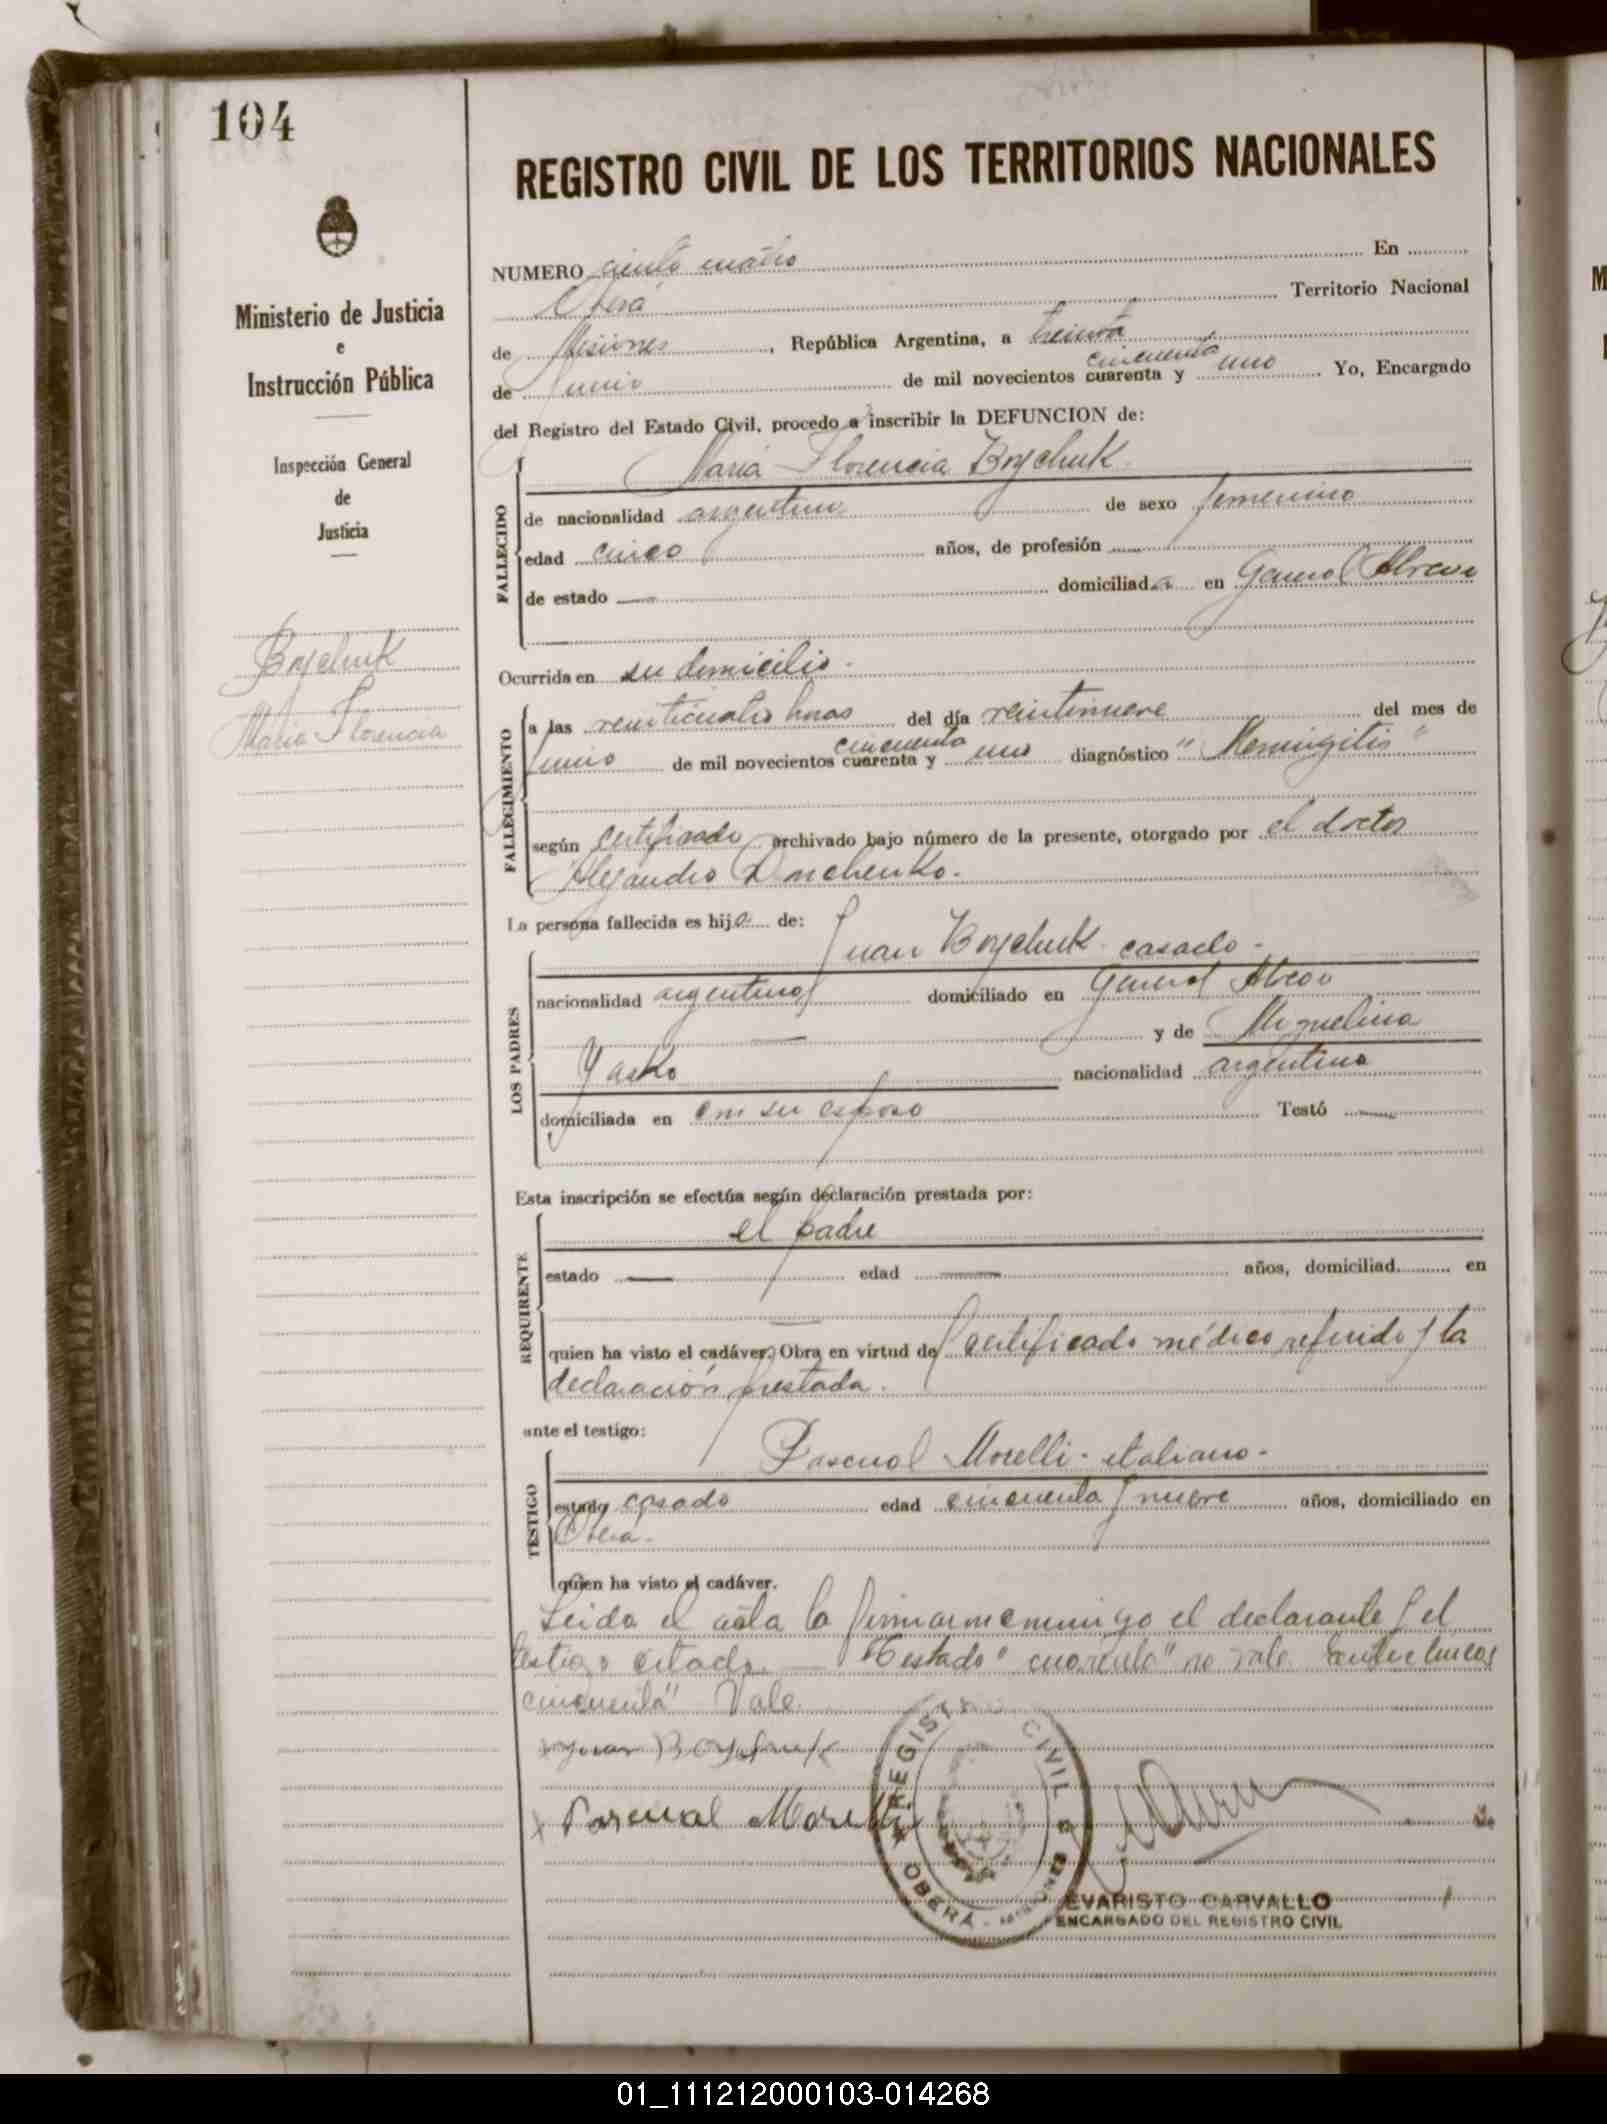 104
Ministerio de Justicia
e
Instrucción Pública
Inspección General
de
Justicia
Boychuk
Maria Florencia
REGISTRO CIVIL DE LOS TERRITORIOS NACIONALES
NUMERO ciento cuatro En
Oberá Territorio Nacional
de Misiones, República Argentina, a treinta
de Junio de mil novecientos cuarenta y cincuenta uno. Yo, Encargado
del Registro del Estado Civil, procedo a inscribir la DEFUNCION de:
Maria Florencia Boychuk
FALLECIDO
de nacionalidad argentina de sexo femenino
edad cinco años, de profesión
de estado domiciliada en General Alvear
Ocurrida en su domicilio.
FALLECIMIENTO
a las veinticuatro horas del día veintinueve del mes de
Junio de mil novecientos cuarenta y cincuenta uno diagnóstico "Meningitis"
según certificado archivado bajo número de la presente, otorgado por el doctor
Alejandro Donchenko.
La persona fallecida es hija de:
LOS PADRES
Juan Boychuk casado-
nacionalidad argentino domiciliado en General Alvear
y de Miguelina
Yasko nacionalidad argentina
domiciliada en con su esposo Testó
Esta inscripción se efectúa según declaración prestada por:
REQUIRENTE
el padre
estado edad años, domiciliad en
quien ha visto el cadáver. Obra en virtud de certificado médico referido y la
declaración prestada.
ante el testigo:
TESTIGO
Pascual Morelli- italiano-
estado casado edad cincuenta y nueve años, domiciliado en
Oberá-
quien ha visto el cadáver.
Leida el acta la firmaron conmigo el declarante y el
testigo citado.— Testado "cuarenta" no vale. Entre lineas
cincuenta" Vale.
x Juan Boychuk
x Pascual Morelli
REGISTRO CIVIL
OBERÁ - MISIONES
EVARISTO CARVALLO
ENCARGADO DEL REGISTRO CIVIL
01_111212000103-014268